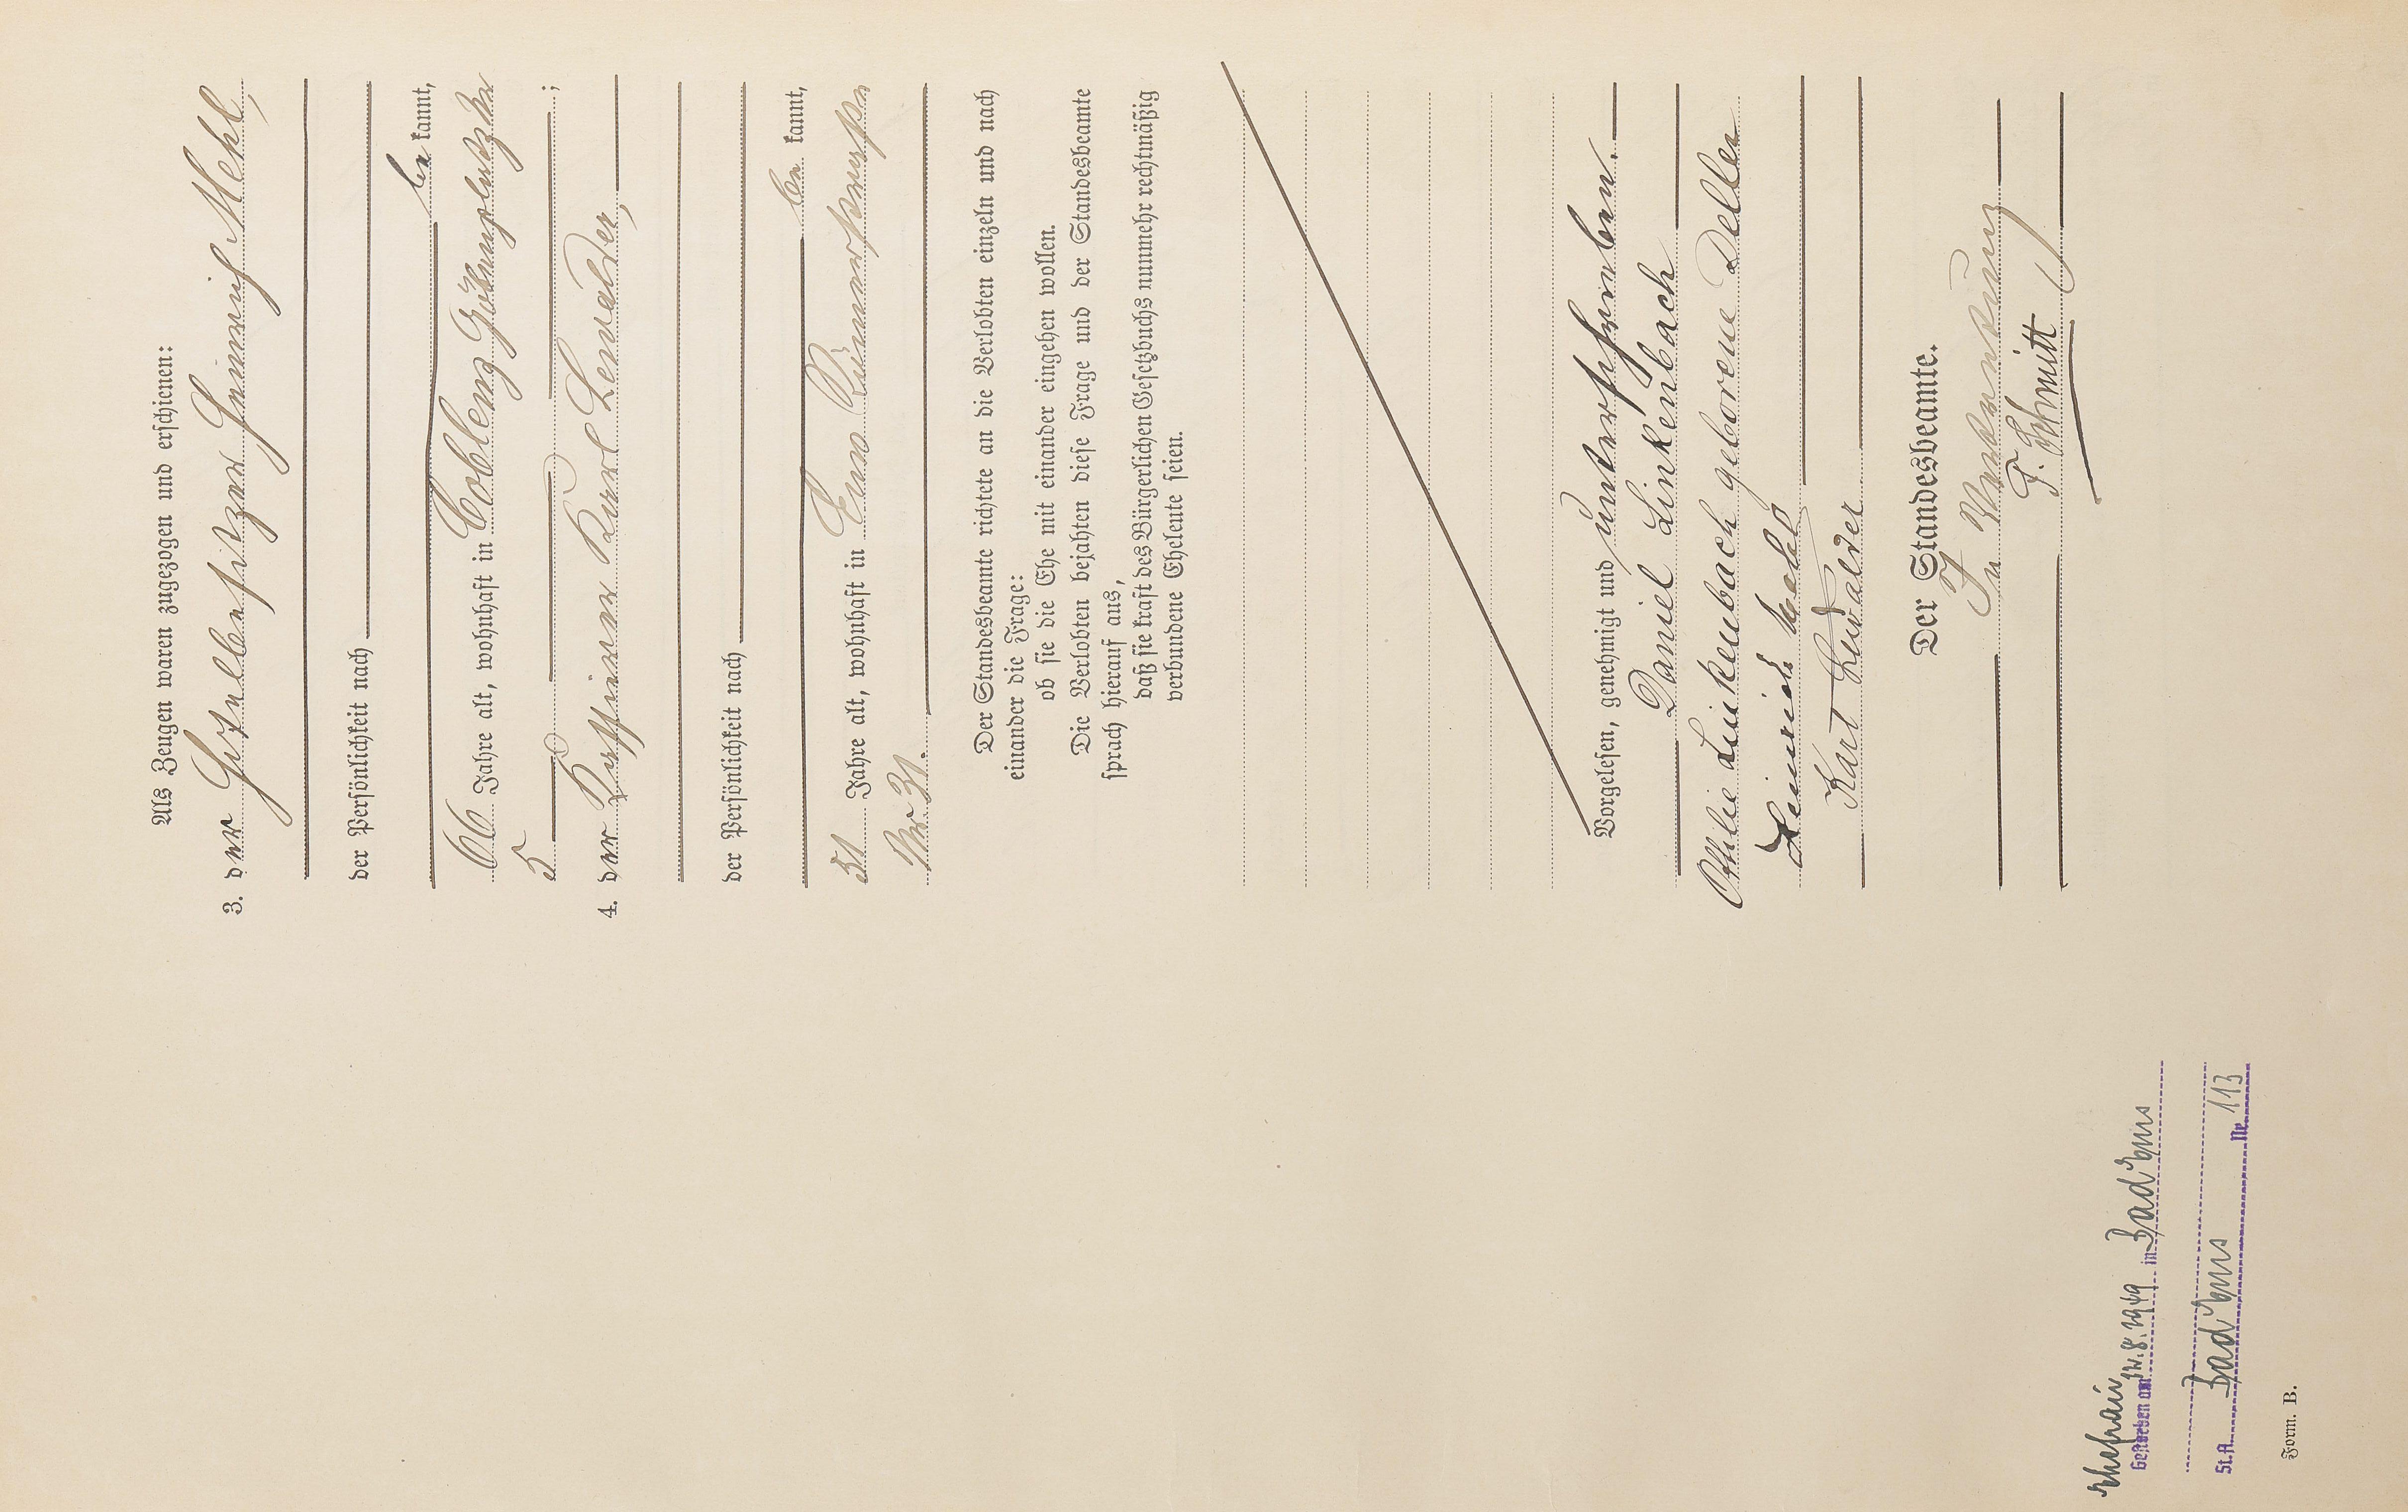 Als Zeugen waren zugezogen und erschienen:
3. der Hotelbesitzer Heinrich Mehl,
der Persönlichkeit nach
be kannt,
66 Jahre alt, wohnhaft in Coblenz Göbenplatz Nr
5 ;
4. der Kassierer Karl Lewalder,
der Persönlichkeit nach
be kannt,
51 Jahre alt, wohnhaft in Ems Römerstrasse
Nr 31.
Der Standesbeamte richtete an die Verlobten einzeln und nach
einander die Frage:
ob sie die Ehe mit einander eingehen wollen.
Die Verlobten bejahten diese Frage und der Standesbeamte
sprach hierauf aus,
daß sie kraft des Bürgerlichen Gesetzbuchs nunmehr rechtmäßig
verbundene Eheleute seien.
Vorgelesen, genehmigt und unterschrieben.
Daniel Linkenbach
Ottilie Linkenbach geborene Deller
Heinrich Mehl
Karl Lewalder
Der Standesbeamte.
In Vertretung
F. Schmitt
Ehefrau
Gestorben am 12.8.1949 in Bad Ems
St.A. Bad Ems Nr. 113
Form. B.